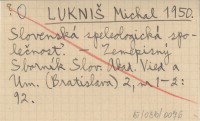 O LUKNIŠ Michal 1950.
Slovenská speleologická spo-
ločnosť. — Zemepisný
Sborník Slov. Akad. Vied a
Um. (Bratislava) 2, no 1-2:
92.